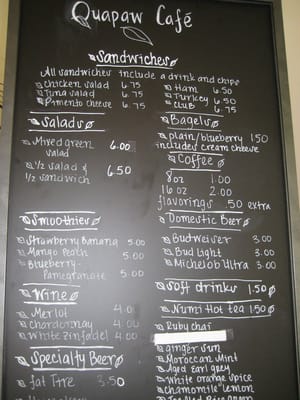 Quapaw Café
Sandwiches
All sandwiches include a drink and chips
Chicken salad 6.75
Tuna salad 6.75
Pimento cheese 6.75
Ham 6.50
Turkey 6.50
Club 6.75
Salads
Mixed green salad 6.00
1/2 salad & 1/2 sandwich 6.50
Bagels
plain/blueberry 1.50
includes cream cheese
Coffee
8oz 1.00
16oz 2.00
flavorings .50 extra
Smoothies
Strawberry Banana 5.00
Mango Peach 5.00
Blueberry-Pomegranate 5.00
Domestic Beer
Budweiser 3.00
Bud light 3.00
Michelob Ultra 3.00
Wine
Merlot 4.00
Chardonnay 4.00
White Zinfadel 4.00
Soft drinks 1.50
Numi Hot tea 1.50
Ruby chai
Ginger Sun
Moroccan Mint
Aged Earl grey
White orange spice
Chamomile Lemon
Specialty Beer
Fat Tire 3.50